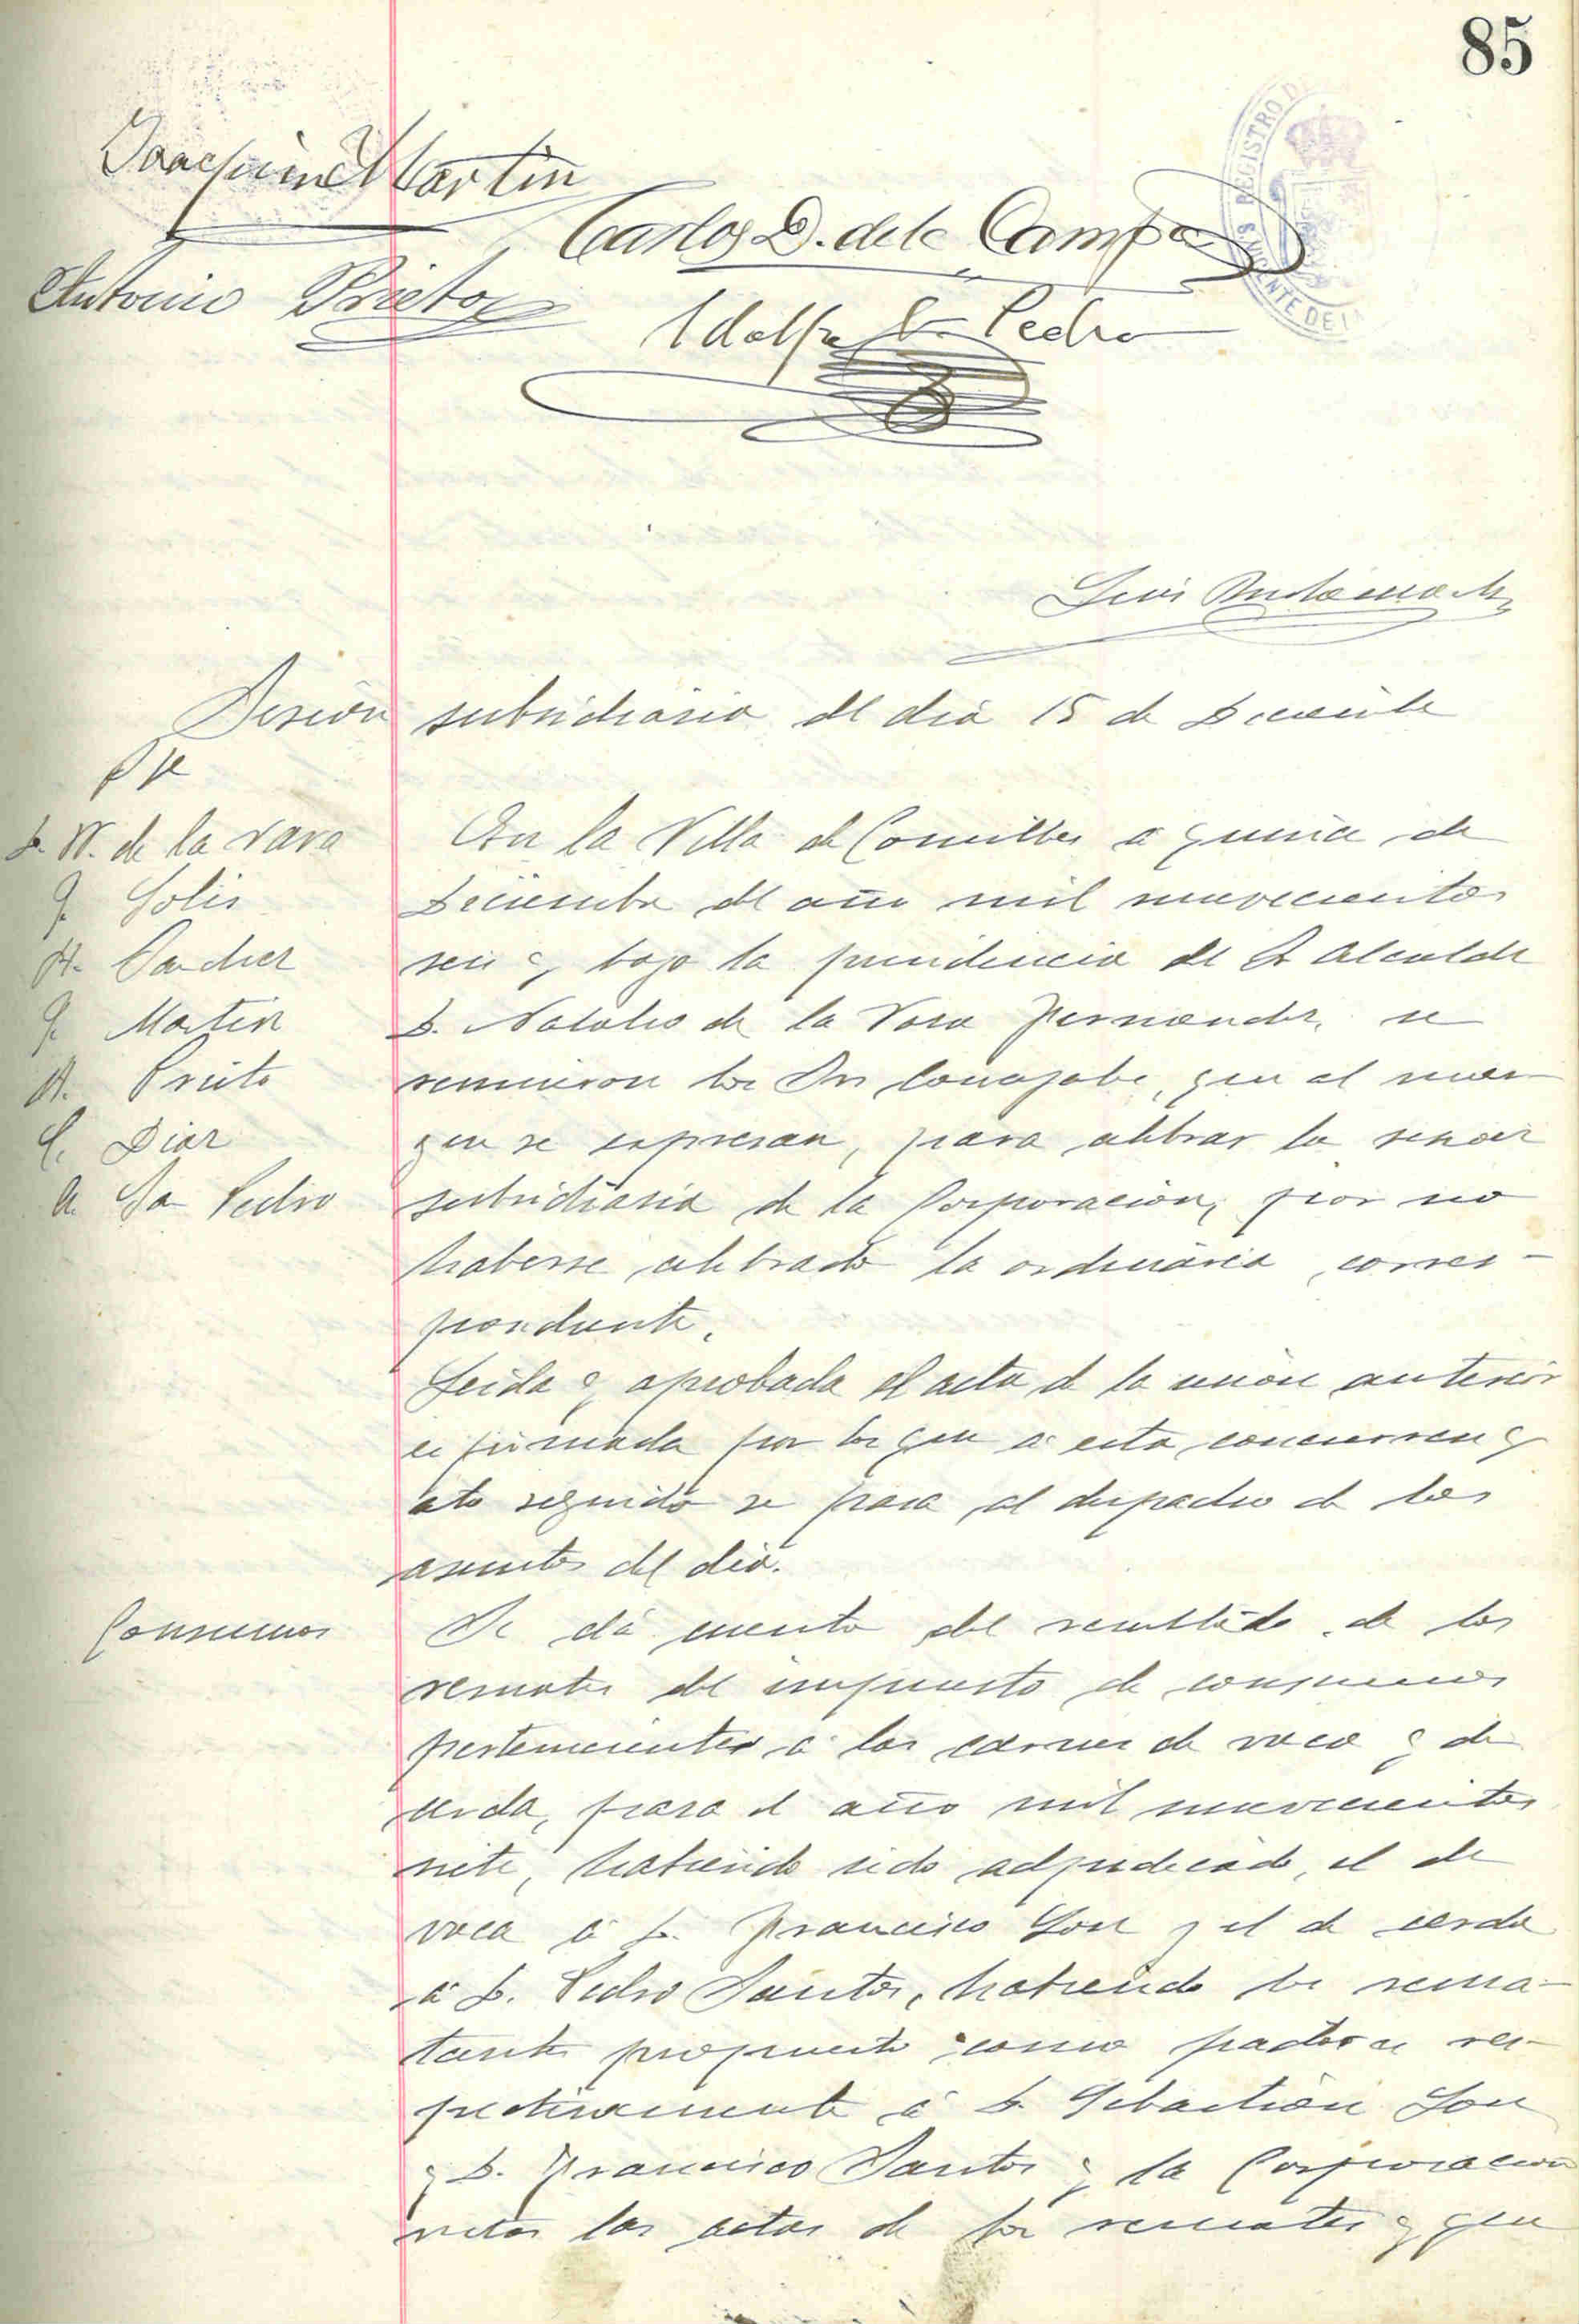 85
Joaquin Martin
Carlos D. de la Campa
Antonio Prieto
Adolfo S. Pedro
Luis
Sesión subsidiaria del dia 15 de Diciembre
D. N. de la Vara
J. Solis
A. Sanchez
J. Martin
A. Prieto
C. Diaz
A. San Pedro
En la Villa de Comillas a quince de
Diciembre del año mil novecientos
seis y bajo la presidencia del Sr Alcalde
D. Natalio de la Vara Fernandez, se
reunieron los Srs Concejales, que al mar
gen se expresan, para celebrar la sesion
subsidiaria de la Corporación, por no
haberse celebrado la ordinaria, corres-
pondiente.
Leida y aprobada el acta de la sesión anterior
es firmada por los que a esta concurren y
acto seguido se pasa al despacho de los
asuntos del dia.
Consumos
Se dá cuenta del resultado de los
remates del impuesto de consumos
pertenecientes á las carnes de vaca y de
cerda, para el año mil novecientos
siete, habiendo sido adjudicado, el de
vaca á D. Francisco y el de cerda
á D. Pedro Santos, habiendo los rema-
tantes propuesto como fiadores res-
pectivamente á D. Sebastián
y D. Francisco Santos y la Corporacion
vistas las actas de los remates y que